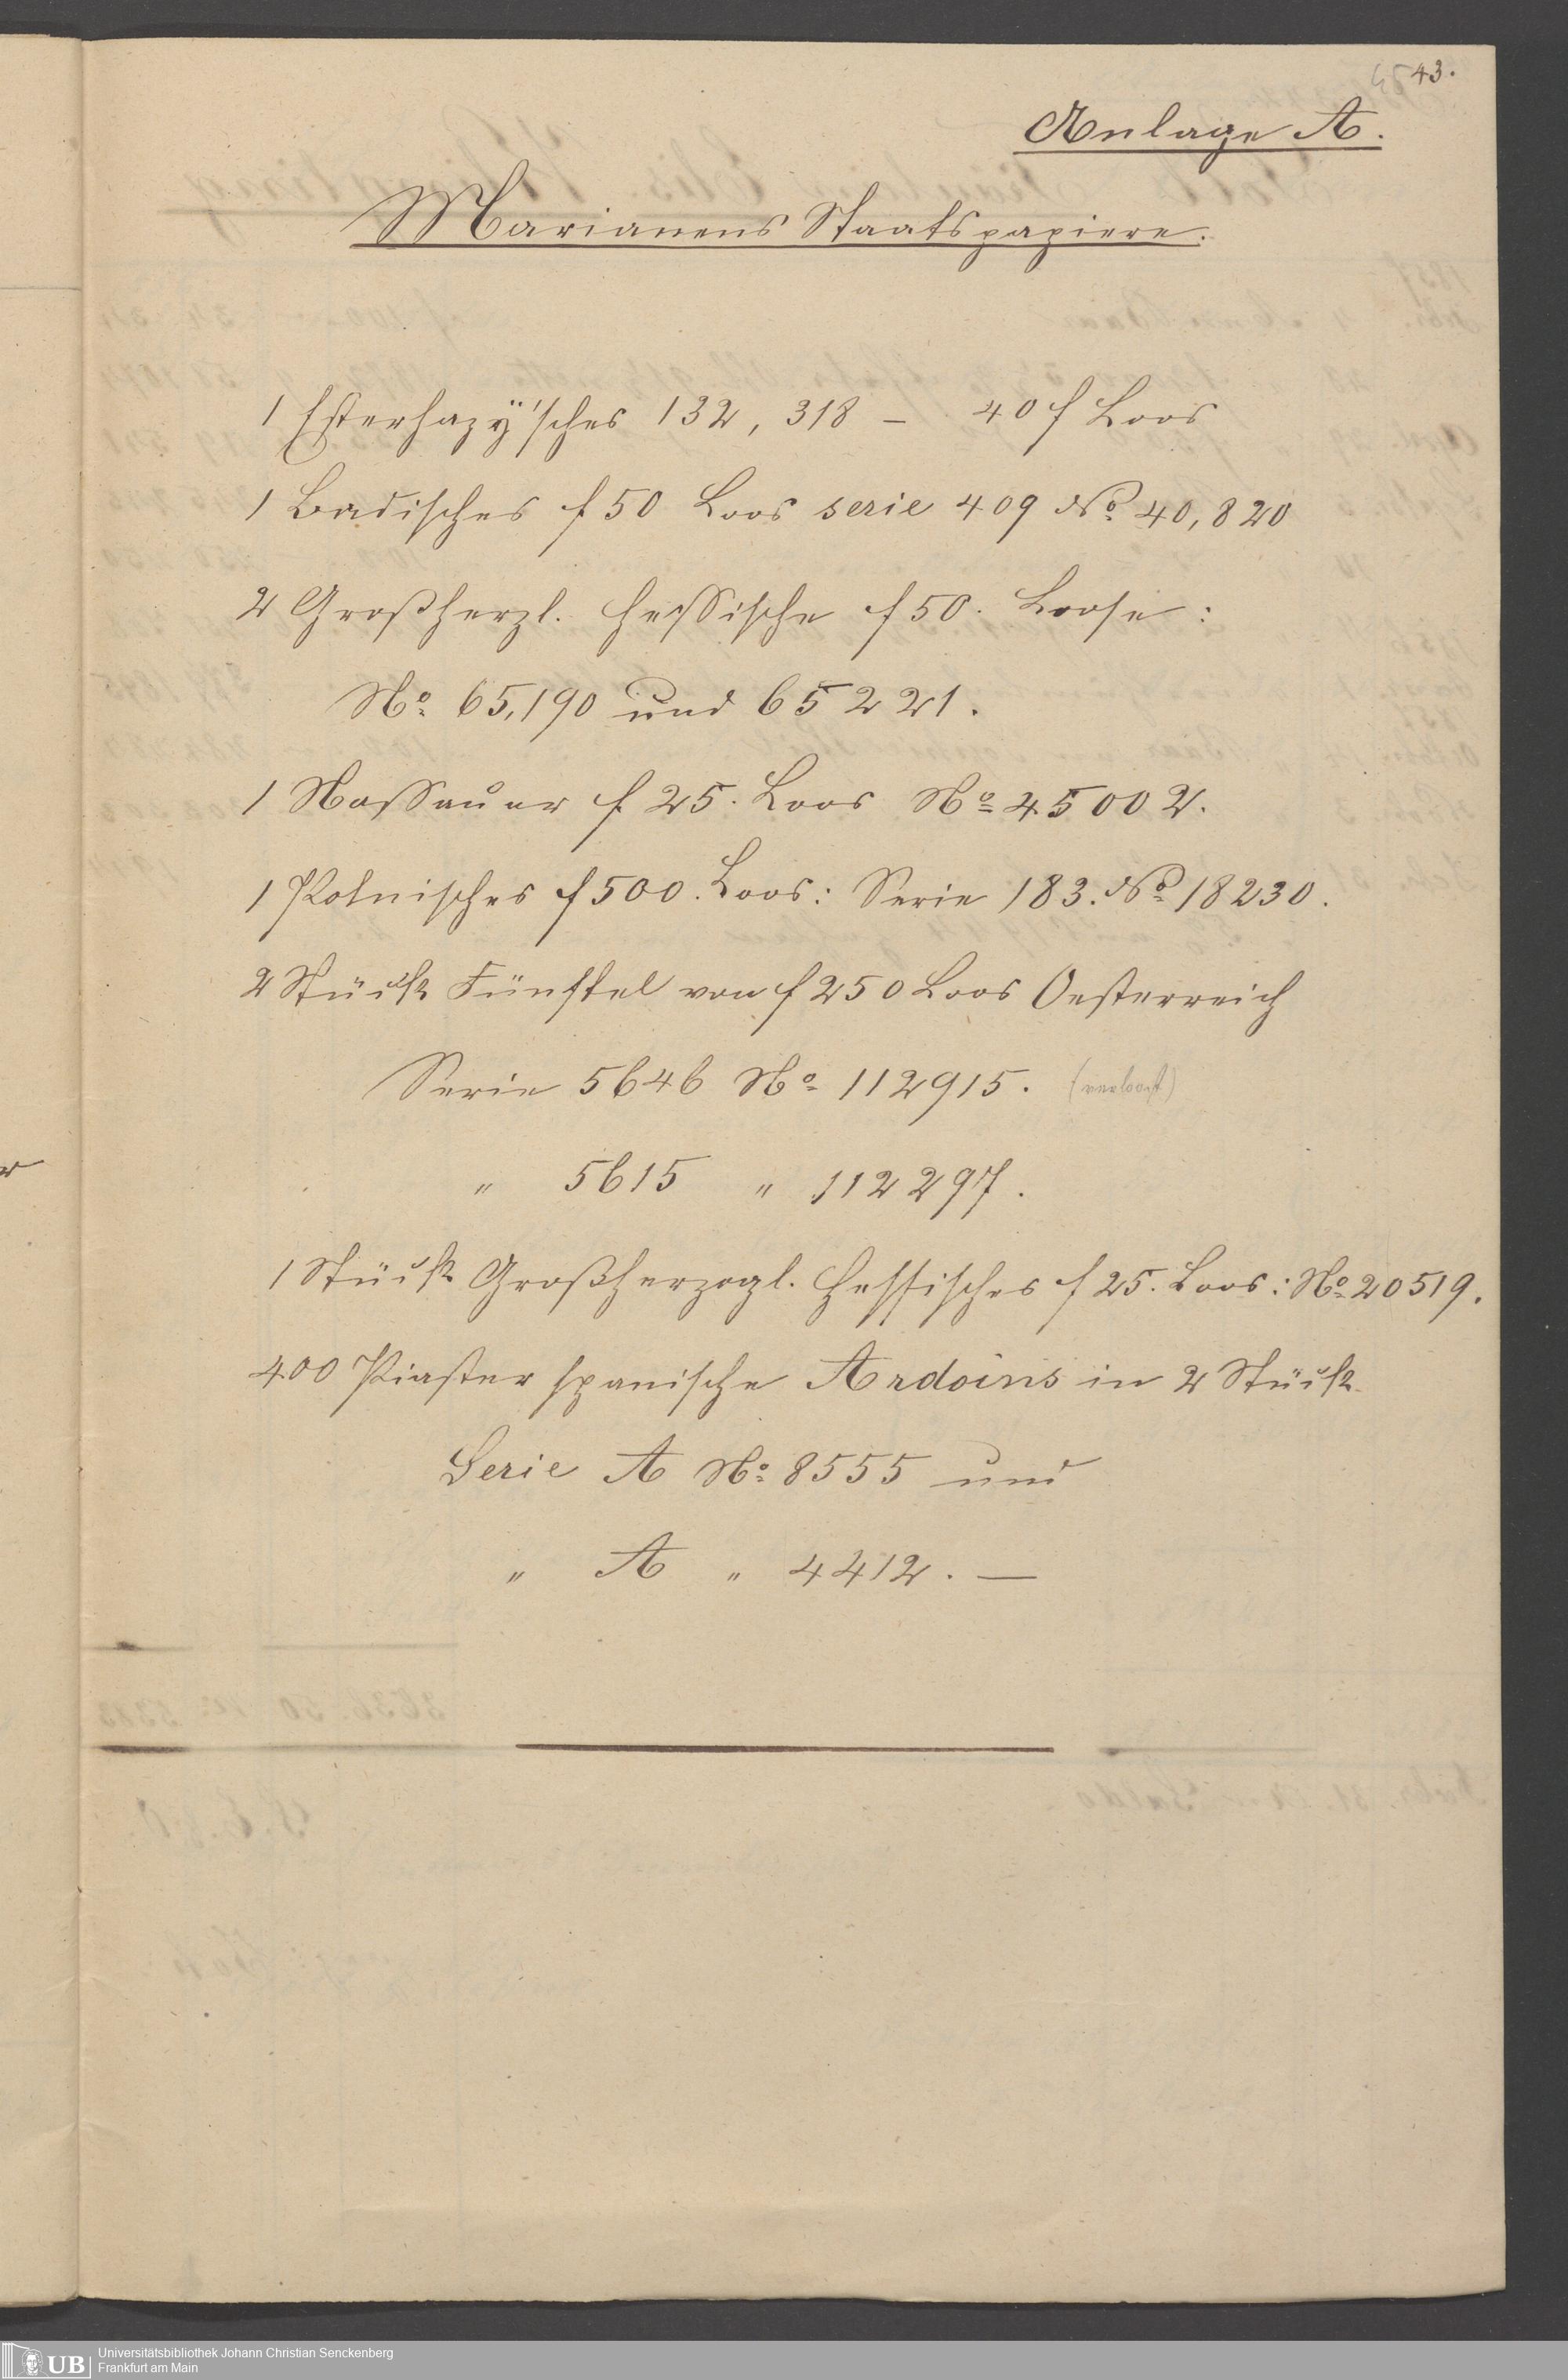 43.
Anlage A.
Marianens Staatspapiere.
1 Esterhazÿ'sches 132, 318 – 40 f Loos
1 Badisches f 50 Loos serie 409 No. 40,820
2 Großherzl. Hessische f 50. Loose:
No. 65,190 und 65221.
1 Nassauer f. 25. Loos No. 45002.
1 Polnisches f 500. Loos: Serie 183. No. 18230.
2 Stück Fünftel von f 250 Loos Oesterreich
Serie 5646 No. 112915. (verloost)
" 5615 " 112297.
1 Stück Großherzogl. Hessisches f 25. Loos: No. 20519.
400 Piaster spanische Ardoins in 2 Stück
Serie A No. 8555 und
" A " 4412. —
UB Universitätsbibliothek Johann Christian Senckenberg
Frankfurt am Main